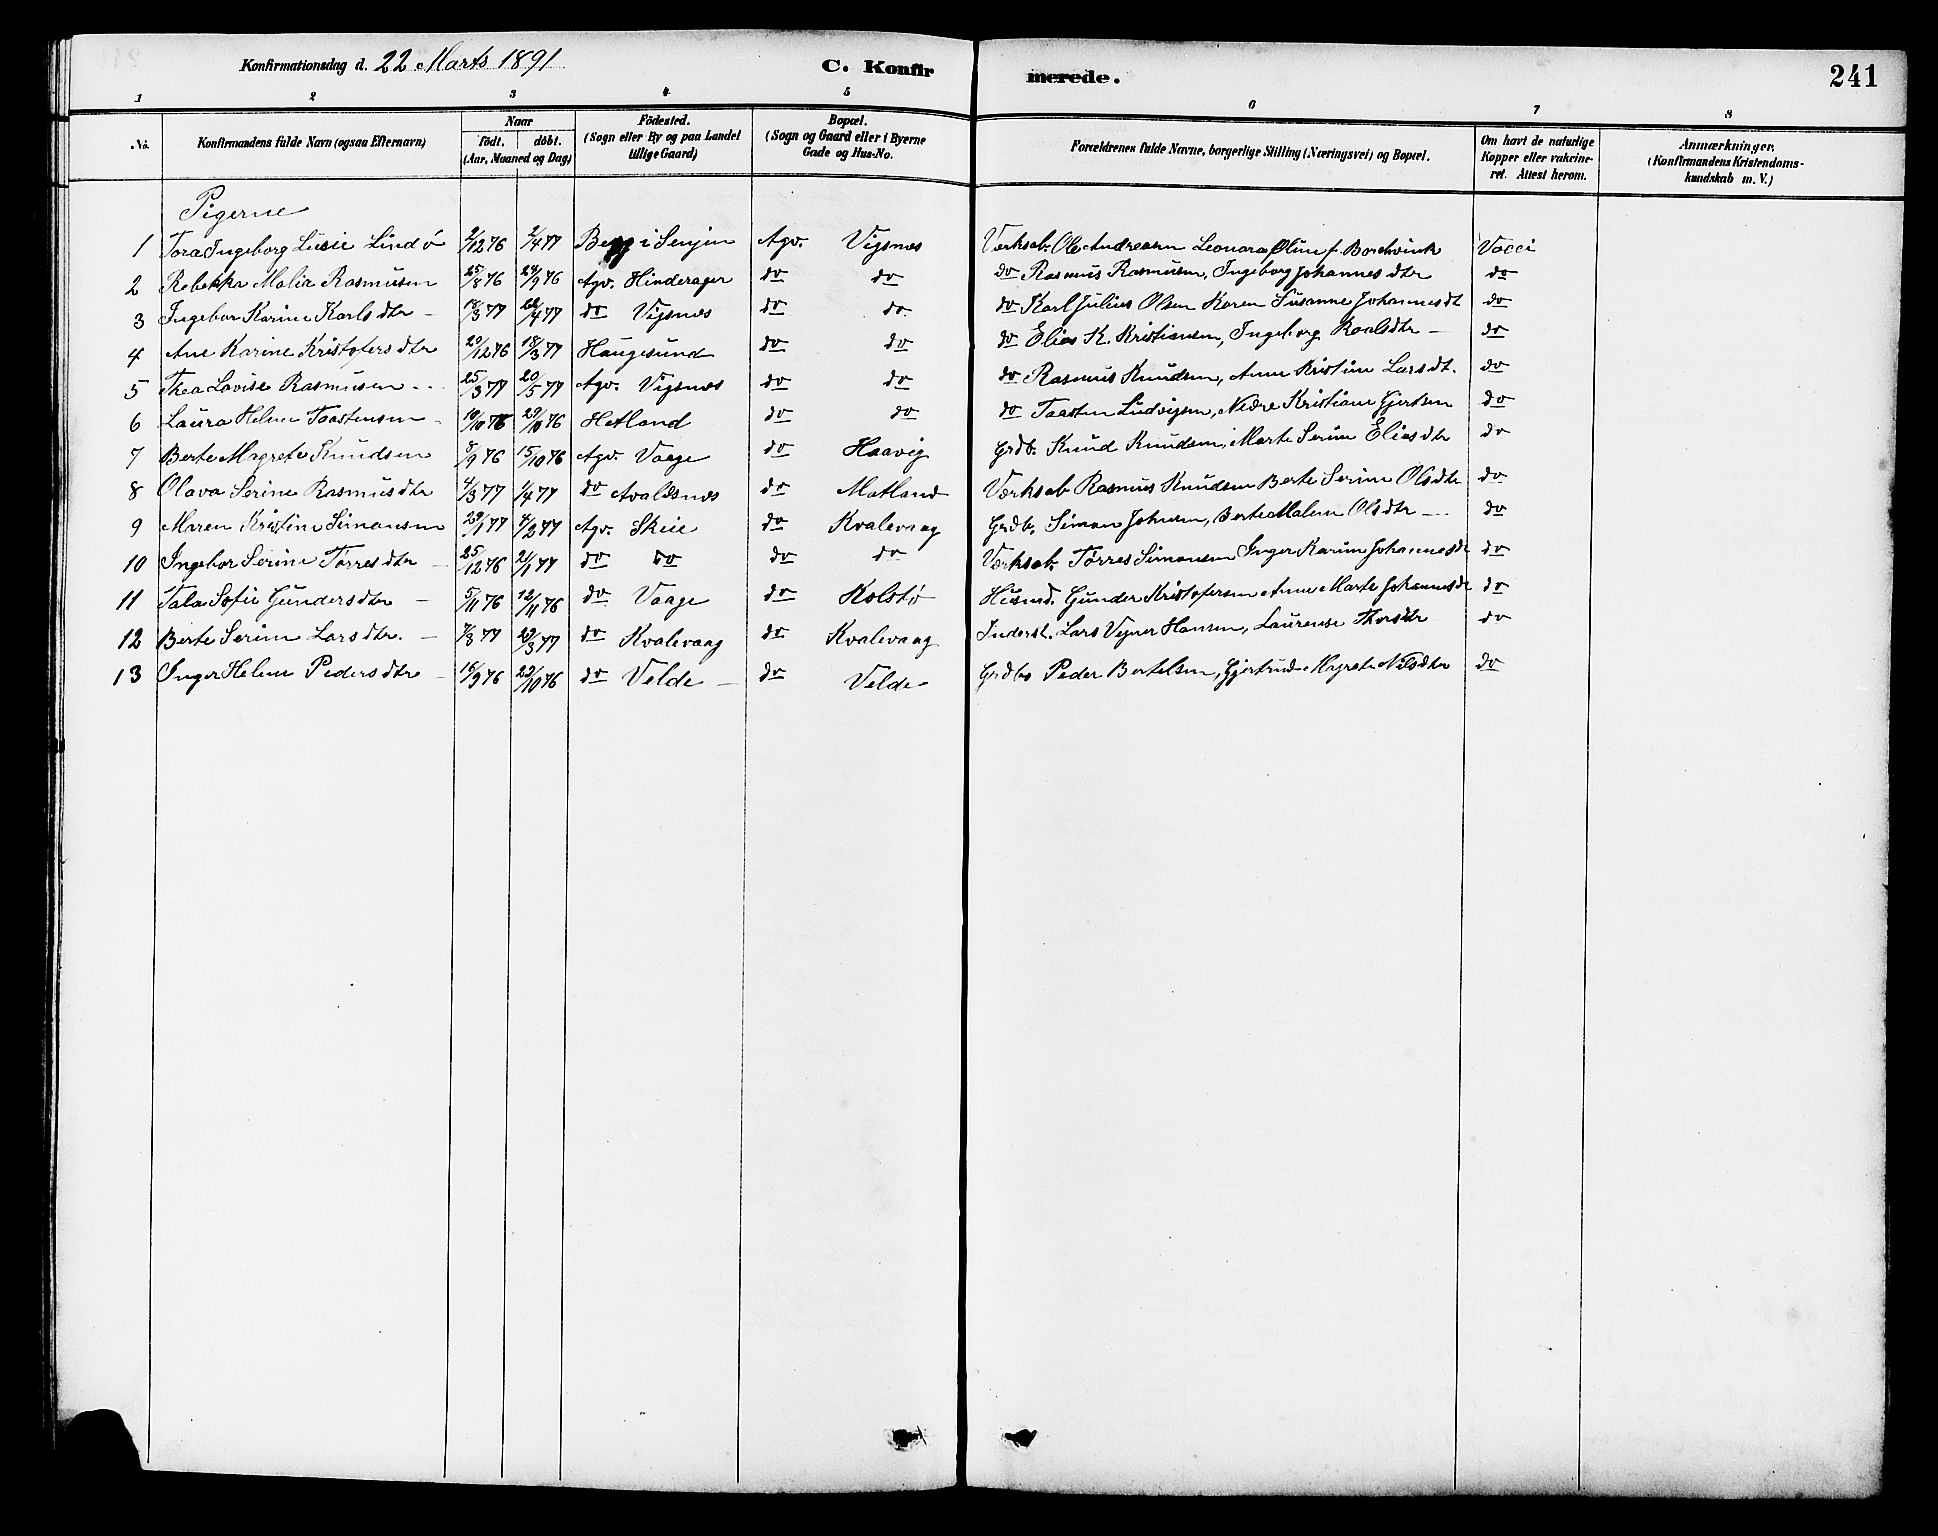 Konfirmationsdag d. 22 Marts 1891 C. Konfirmerede. 241
1 2 3 4 5 6 7 8
No. Konfirmandens fulde Navn (ogsaa Efternavn) Naar födt, döbt. (Aar, Maaned og Dag) Födested. (Sogn eller By og paa Landet tillige Gaard) Bopæl. (Sogn og Gaard eller i Byerne Gade og Hus-No. Forældrenes fulde Navne, borgerlige Stilling (Næringsvei) og Bopæl. Om havt de naturlige Kopper eller vakcineret. Attest herom. Anmærkninger, (Konfirmandens Kristendomskundskab m. V.)
Pigerne
1 Tora Ingeborg Lusie Lindø 2/12 76 2/4 77 Berg i Senjen Agv. Vigsnes Værksab. Ole Andreasen Leonora Oline f. Borchrink Vacci
2 Rebekka Malia Rasmusen 25/8 76 24/9 76 Agv. Hinderager do do do Rasmus Rasmusen, Ingeborg Johannesdtr do
3 Ingebor Karine Karlsdtr 18/3 77 22/4 77 do Vigsnes do do do Karl Julius Olsen Karen Susanne Johannesdt do
4 Ane Karine Kristofersdtr 20/12 76 18/3 77 Haugesund do do do Elias K. Kristiansen, Ingeborg Roalsdtr do
5 Thea Lovise Rasmusen 25/3 77 20/5 77 Agv. Vigsnes do do do Rasmus Knudsen, Anne Kristine Larsdt. do
6 Laura Helene Taastensen 10/10 76 29/10 76 Hetland do do do Taasten Ludvigsen, Nidre Kristiane Gjertsen do
7 Berte Magrete Knudsen 8/9 76 15/10 76 Agv. Vaage do Haavig Grdb. Knud Knudsen, Marte Serine Eliasdtr do
8 Olava Serine Rasmusdtr 4/3 77 1/4 77 do Avaldsnes do Matland Værksab Rasmus Knudsen Berte Serine Olsdtr do
9 Maren Kristine Simonsen 29/1 77 4/2 77 Agv. Skeie do Kvalevaag Grdb. Simon Johnsen, Berte Malene Olsdtr do
10 Ingebor Serine Tørresdtr 25/12 76 21/1 77 do do do do Værksab. Tørres Simonsen Inger Karine Johannesdr do
11 Tala Sofie Gundersdtr 5/11 76 12/11 76 do Vaage do Kolstø Husmd. Gunder Kristofersen Anne Marte Johannesdr do
12 Berte Serine Larsdtr. 7/3 77 29/3 77 do Kvalevaag do Kvalevaag Inderst. Lars Vegner Hansen, Laurense Thorsdtr do
13 Inger Helene Pedersdtr 16/9 76 23/10 76 do Velde do Velde Grdbr Peder Bertelsen, Gjertrud Magrete Nilsdtr do